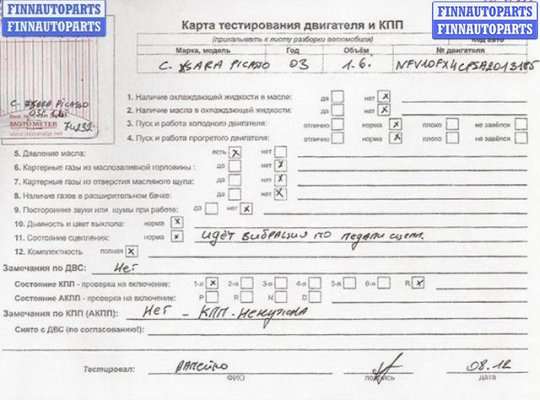 FINNAUTOPARTS
FINNAUTOPARTS
FINNAUTOPARTS
FINNAUTOPARTS
Карта тестирования двигателя и КПП
(прикалывать к листу разборки автомобиля)
Марка, модель Год Объём № двигателя
C. XSARA PICASSO 03 1.6.
C. XSARA PICASSO
MOTOMETER
1. Наличие охлаждающей жидкости в масле: да нет x
2. Наличие масла в охлаждающей жидкости: да нет x
3. Пуск и работа холодного двигателя: отлично норма x плохо не завёлся
4. Пуск и работа прогретого двигателя: отлично норма x плохо не завёлся
5. Давление масла: есть x нет
6. Картерные газы из маслозаливной горловины: да нет x
7. Картерные газы из отверстия масляного щупа: да нет x
8. Наличие газов в расширительном бачке: да нет x
9. Посторонние звуки или шумы при работе: да нет x
10. Дымность и цвет выхлопа: норма x
11. Состояние сцепления: норма x идёт вибрация по педали сцеп.
12. Комплектность: полная x
Замечания по ДВС: Нет
Состояние КПП - проверка на включение: 1-я x 2-я 3-я 4-я 5-я 6-я R x
Состояние АКПП - проверка на включение: P R N D
Замечания по КПП (АКПП): Нет - КПП-
Снято с ДВС (по согласованию!):
Тестировал:
ФИО подпись дата
08.12